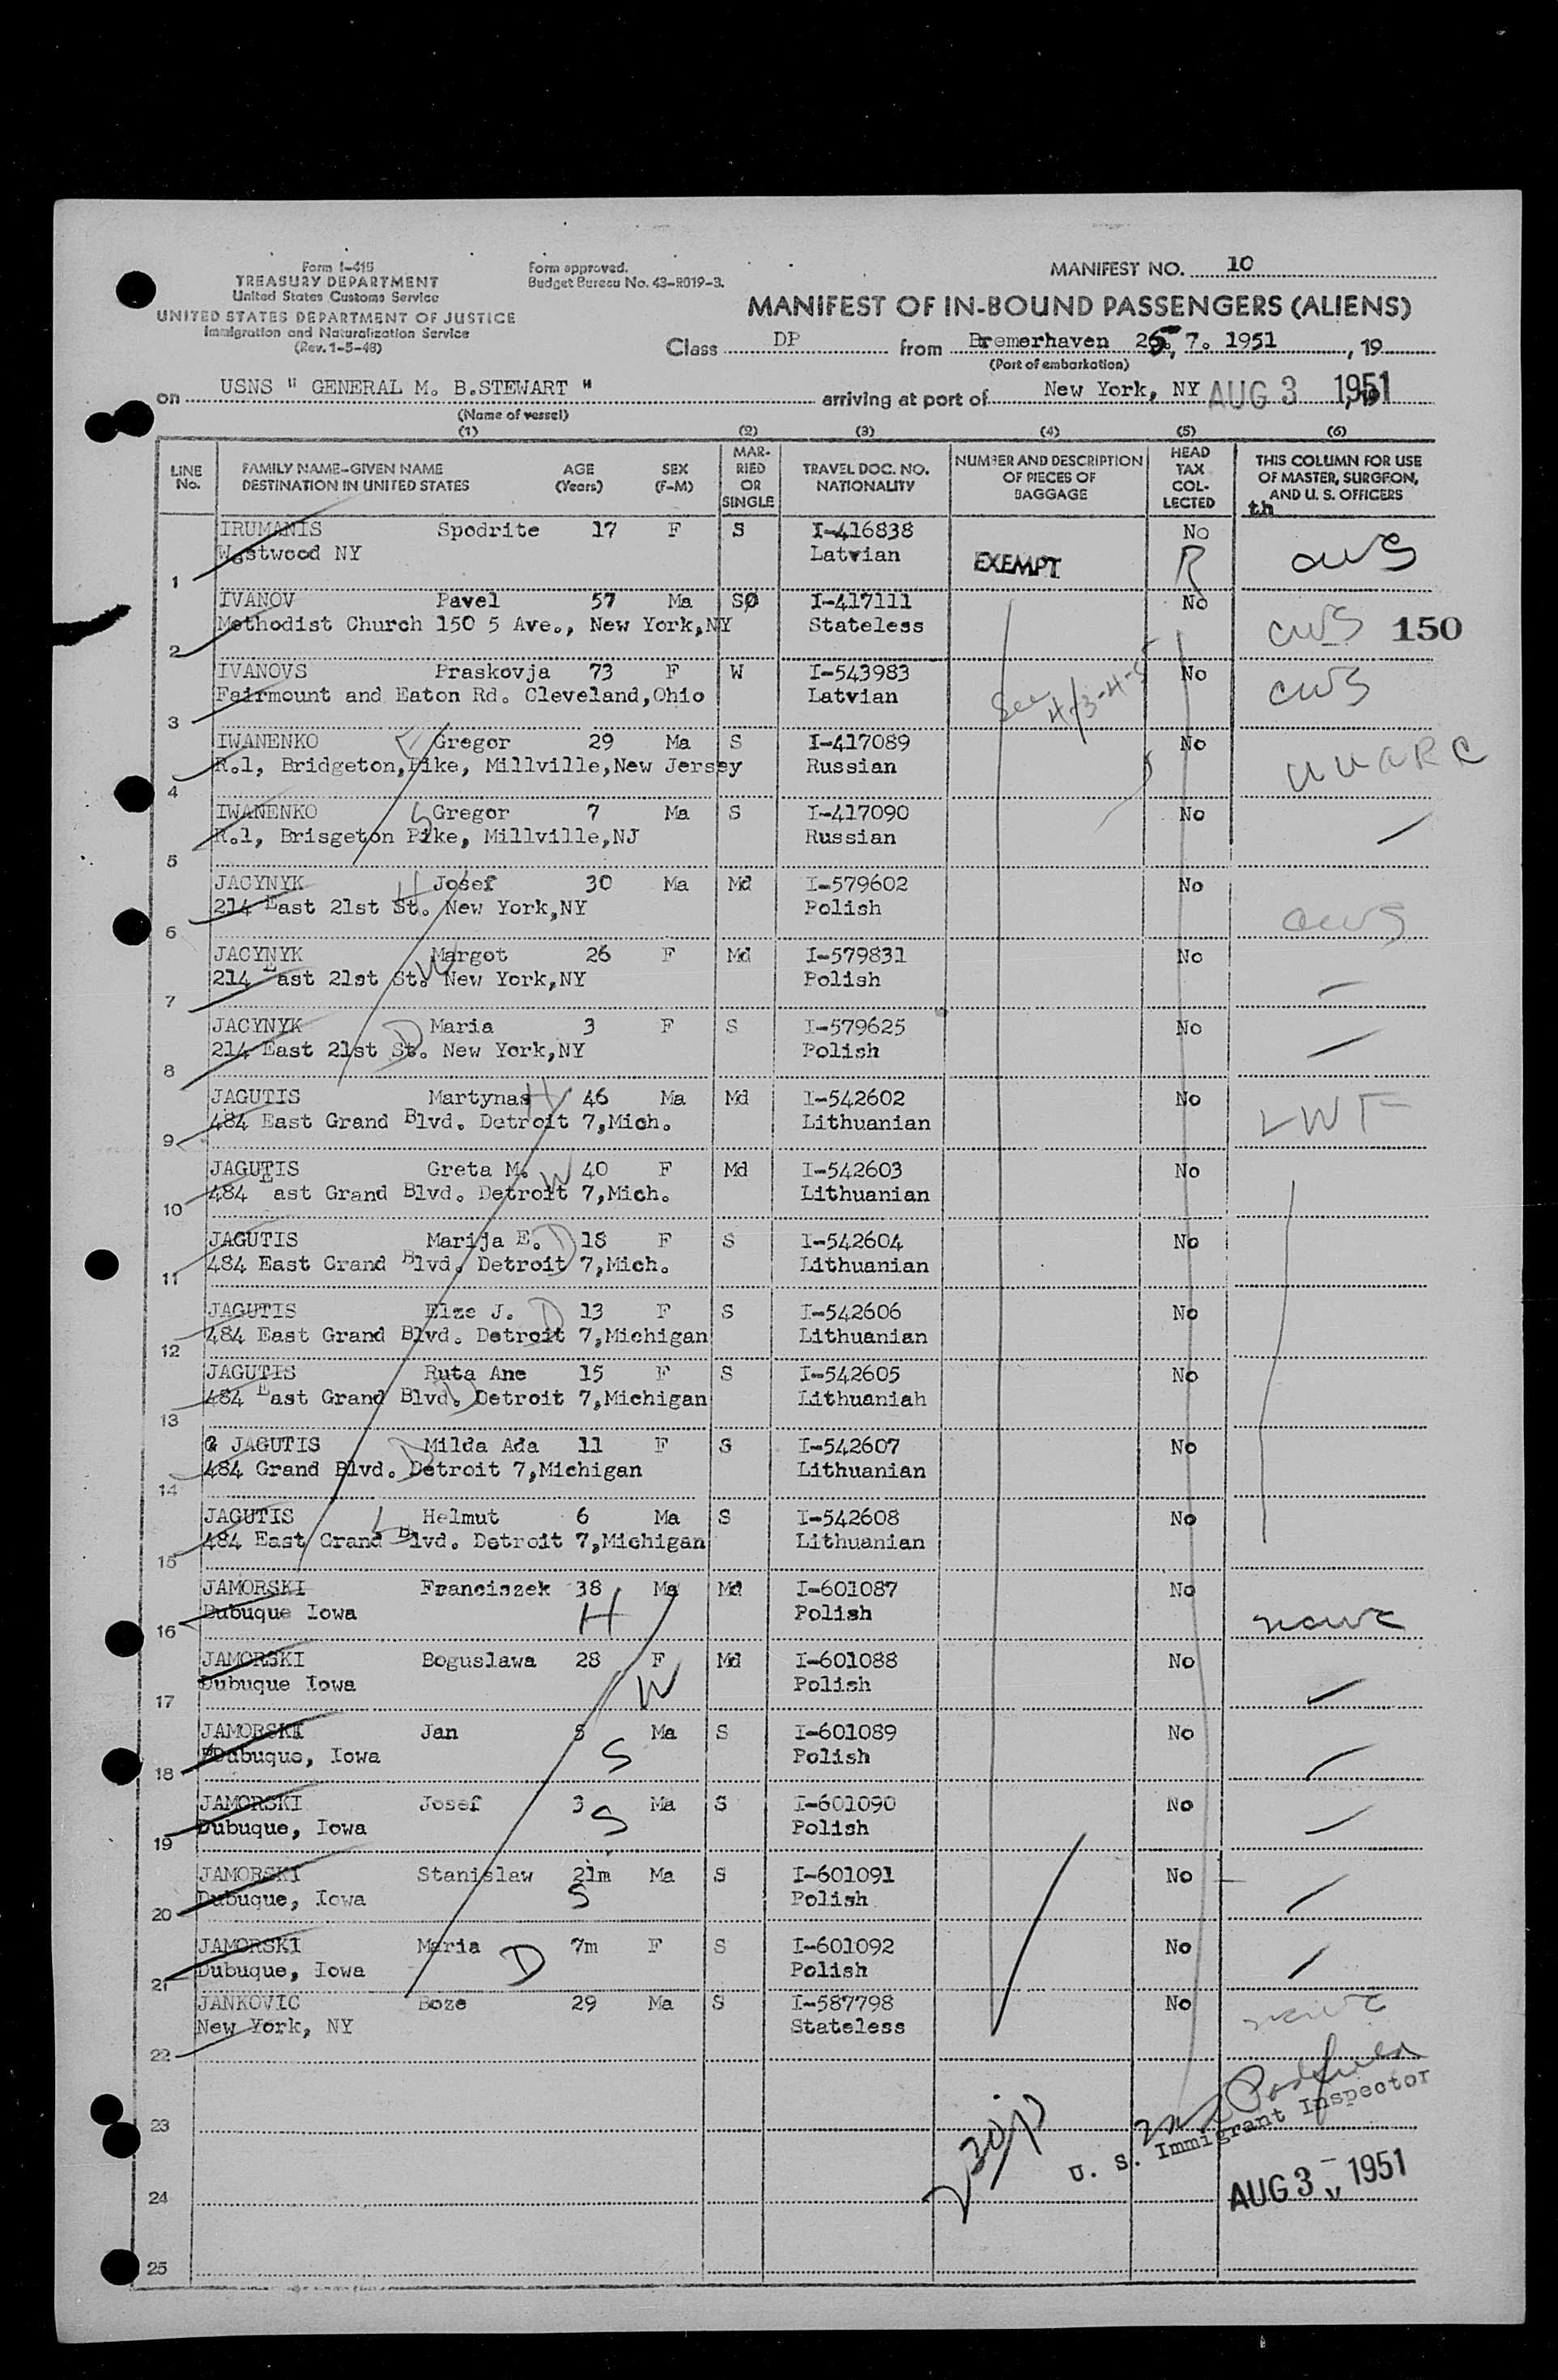 Form I-415
TREASURY DEPARTMENT
United States Customs Service
UNITED STATES DEPARTMENT OF JUSTICE
Immigration and Naturalization Service
(Rev. 1-5-48)
Form approved.
Budget Bureau No. 43-R019-3.
MANIFEST NO. 10
MANIFEST OF IN-BOUND PASSENGERS (ALIENS)
Class DP from Bremerhaven 25. 7. 1951, 19
(Port of embarkation)
on USNS " GENERAL M. B.STEWART " arriving at port of New York, NY AUG 3 1951
(Name of vessel)
(1) (2) (3) (4) (5) (6)
LINE No. FAMILY NAME-GIVEN NAME DESTINATION IN UNITED STATES AGE (Years) SEX (F-M) MARRIED OR SINGLE TRAVEL DOC. NO. NATIONALITY NUMBER AND DESCRIPTION OF PIECES OF BAGGAGE HEAD TAX COLLECTED THIS COLUMN FOR USE OF MASTER, SURGEON, AND U. S. OFFICERS
th
IRUMANIS Spodrite 17 F S I-416838 No
1 Westwood NY Latvian EXEMPT R cws
IVANOV Pavel 57 Ma SØ I-417111 No
2 Methodist Church 150 5 Ave., New York,NY Stateless cws 150
IVANOVS Praskovja 73 F W I-543983 No
3 Fairmount and Eaton Rd. Cleveland,Ohio Latvian See cws
IWANENKO Gregor 29 Ma S I-417089 No
4 R.1, Bridgeton,Pike, Millville,New Jersey Russian
IWANENKO S Gregor 7 Ma S I-417090 No
5 R.1, Brisgeton Pike, Millville,NJ Russian
JACYNYK H Josef 30 Ma Md I-579602 No
6 214 East 21st St. New York,NY Polish cws
JACYNYK W Margot 26 F Md I-579831 No
7 214 East 21st St. New York,NY Polish
JACYNYK D Maria 3 F S I-579625 No
8 214 East 21st St. New York,NY Polish
JAGUTIS Martynas H 46 Ma Md I-542602 No
9 484 East Grand Blvd. Detroit 7,Mich. Lithuanian LWF
JAGUTIS Greta M. W 40 F Md I-542603 No
10 484 East Grand Blvd. Detroit 7,Mich. Lithuanian
JAGUTIS Marija E. D 18 F S I-542604 No
11 484 East Grand Blvd. Detroit 7,Mich. Lithuanian
JAGUTIS Elze J. D 13 F S I-542606 No
12 484 East Grand Blvd. Detroit 7,Michigan Lithuanian
JAGUTIS Ruta Ane 15 F S I-542605 No
13 484 East Grand Blvd. D Detroit 7,Michigan Lithuaniah
JAGUTIS D Milda Ada 11 F S I-542607 No
14 484 Grand Blvd. Detroit 7,Michigan Lithuanian
JAGUTIS Helmut 6 Ma S I-542608 No
15 484 East Grand Blvd. Detroit 7,Michigan Lithuanian
JAMORSKI Franciszek 38 Ma Md I-601087 No
16 Dubuque Iowa H Polish ncwc
JAMORSKI Boguslawa 28 F Md I-601088 No
17 Dubuque Iowa W Polish
JAMORSKI Jan 5 Ma S I-601089 No
18 Dubuque, Iowa S Polish
JAMORSKI Josef 3 Ma S I-601090 No
19 Dubuque, Iowa S Polish
JAMORSKI Stanislaw 21m Ma S I-601091 No
20 Dubuque, Iowa S Polish
JAMORSKI Maria 7m F S I-601092 No
21 Dubuque, Iowa D Polish
JANKOVIC Boze 29 Ma S I-587798 No ncwc
22 New York, NY Stateless
23
U. S. Immigrant Inspector
24 AUG 3 - 1951
25